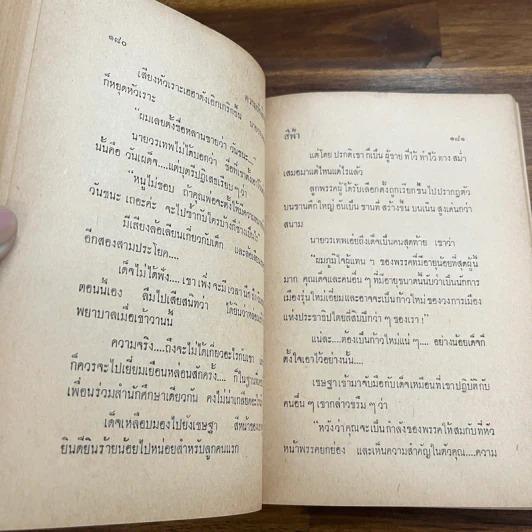 ๑๘๐
เสียงหัวเราะเฮฮาดังเอิกเกริกขึ้น
ก็หยุดหัวเราะ
"ผมเลยตั้งชื่อหลานชายว่า วันชนะ..."
นายวรเทพไม่ได้บอกว่า ชื่อที่เขา
นั้นคือ วันเผด็จ....แต่บุตรีปฏิเสธเรียบ ๆ ว่า
"หนูไม่ชอบ ถ้าคุณพ่อจะตั้งให้มีความหมาย
วันชนะ เถอะค่ะ จะไปซ้ำกับใครบ้างก็ช่างเป็นไร"
มีเสียงล้อเลียนเกี่ยวกับเด็ก และ
อีกสองสามประโยค....
เด็จไม่ได้ฟัง.... เขาเพิ่งจะมีเวลานึก
ตอนนี้เอง ลืมไปเสียสนิทว่า ได้ยิน
พยาบาลเมื่อเช้าวานนี้
ความจริง....ถึงจะไม่ได้เกี่ยวอะไรกับเขา
ก็ควรจะไปเยี่ยมเยือนหล่อนสักครั้ง.... ก็ในฐานะ
เพื่อนร่วมสำนักศึกษาเดียวกัน คงไม่น่าเกลียดอะไร
เด็จเหลือบมองไปยังเชษฐา สีหน้าของ
ยินดียินร้ายน้อยไปหน่อยสำหรับลูกคนแรก
สีฟ้า ๑๘๑
แต่โดย ปรกติเขา ก็เป็น ผู้ชาย ที่ไว้ ท่าไว้ ทาง สม่ำ
เสมอมาแต่ไหนแต่ไรแล้ว
ลูกพรรคผู้ ได้รับเลือกตั้งถูกเรียกขึ้นไปปรากฏตัว
บนชานตึกใหญ่ อันเป็น ชานที่ สร้างขึ้น บนเนิน สูงเด่นกว่า
สนาม
นายวรเทพเอ่ยถึงเด็จเป็นคนสุดท้าย เขาว่า
"ผมภูมิใจผู้แทน ๆ ของพรรคที่มีอายุน้อยที่สุดผู้นี้
มาก คุณเด็จและคนอื่น ๆ ที่มีอายุขนาดนี้นับว่าเป็นนักการ
เมืองรุ่นใหม่เอี่ยมและอาจจะเป็นก้าวใหม่ของวงการเมือง
แห่งประชาธิปไตยลี่สิบปีกว่า ๆ ของเรา !"
แน่ละ....ต้องเป็นก้าวใหม่แน่ ๆ.... อย่างน้อยเด็จก็
ตั้งใจเอาไว้อย่างนั้น....
เชษฐาเข้ามาจับมือกับเด็จเหมือนที่เขาปฏิบัติกับ
คนอื่น ๆ เขากล่าวขรึม ๆ ว่า
"หวังว่าคุณจะเป็นกำลังของพรรคให้สมกับที่หัว
หน้าพรรคยกย่อง และเห็นความสำคัญในตัวคุณ....ความ